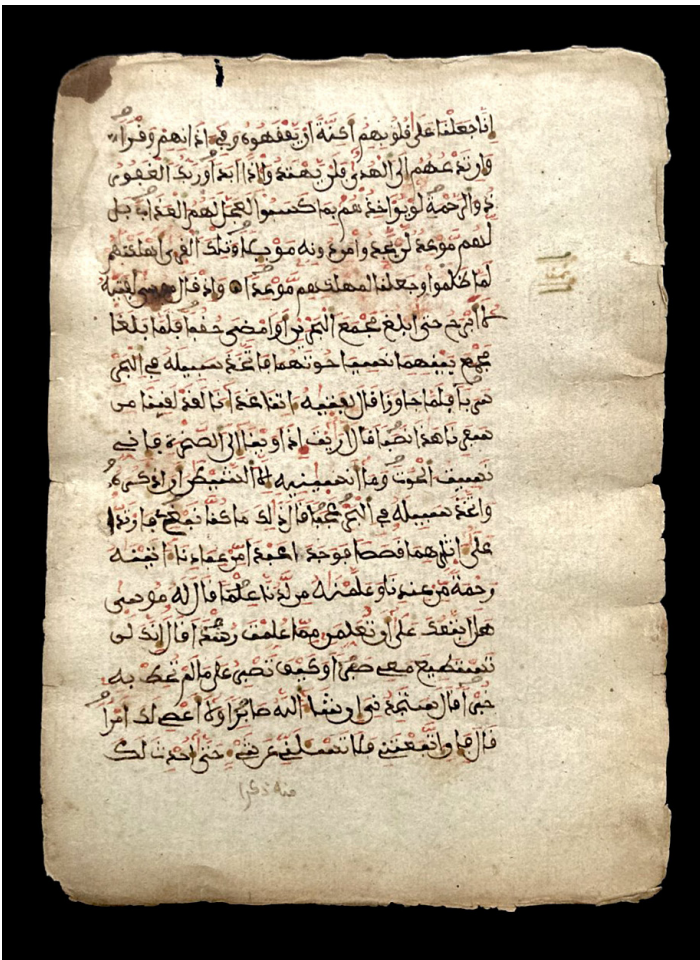 إنا جعلنا على قلوبهم أكنة أن يفقهوه وفي آذانهم وقرا
وإن تدعهم إلى الهدى فلن يهتدوا إذا أبدا وربك الغفور
ذو الرحمة لو يؤاخذهم بما كسبوا لعجل لهم العذاب بل
لهم موعد لن يجدوا من دونه موئلا وتلك القرى أهلكنهم
لما ظلموا وجعلنا لمهلكهم موعدا وإذ قال موسى لفتيه
لا أبرح حتى أبلغ مجمع البحرين أو أمضي حقبا فلما بلغا
مجمع بينهما نسيا حوتهما فاتخذ سبيله في البحر
سربا فلما جاوزا قال لفتيه آتنا غداءنا لقد لقينا من
سفرنا هذا نصبا قال أريت إذ أوينا إلى الصخرة فإني
نسيت الحوت وما أنسينيه إلا الشيطن أن أذكره
واتخذ سبيله في البحر عجبا قال ذلك ما كنا نبغ فارتدا
على آثارهما قصصا فوجدا عبدا من عبادنا آتينه
رحمة من عندنا وعلمنه من لدنا علما قال له موسى
هل أتبعك على أن تعلمن مما علمت رشدا قال إنك لن
تستطيع معي صبرا وكيف تصبر على ما لم تحط به
خبرا قال ستجدني إن شاء الله صابرا ولا أعصي لك أمرا
قال فإن اتبعتني فلا تسئلني عن شيء حتى أحدث لك
منه ذكرا